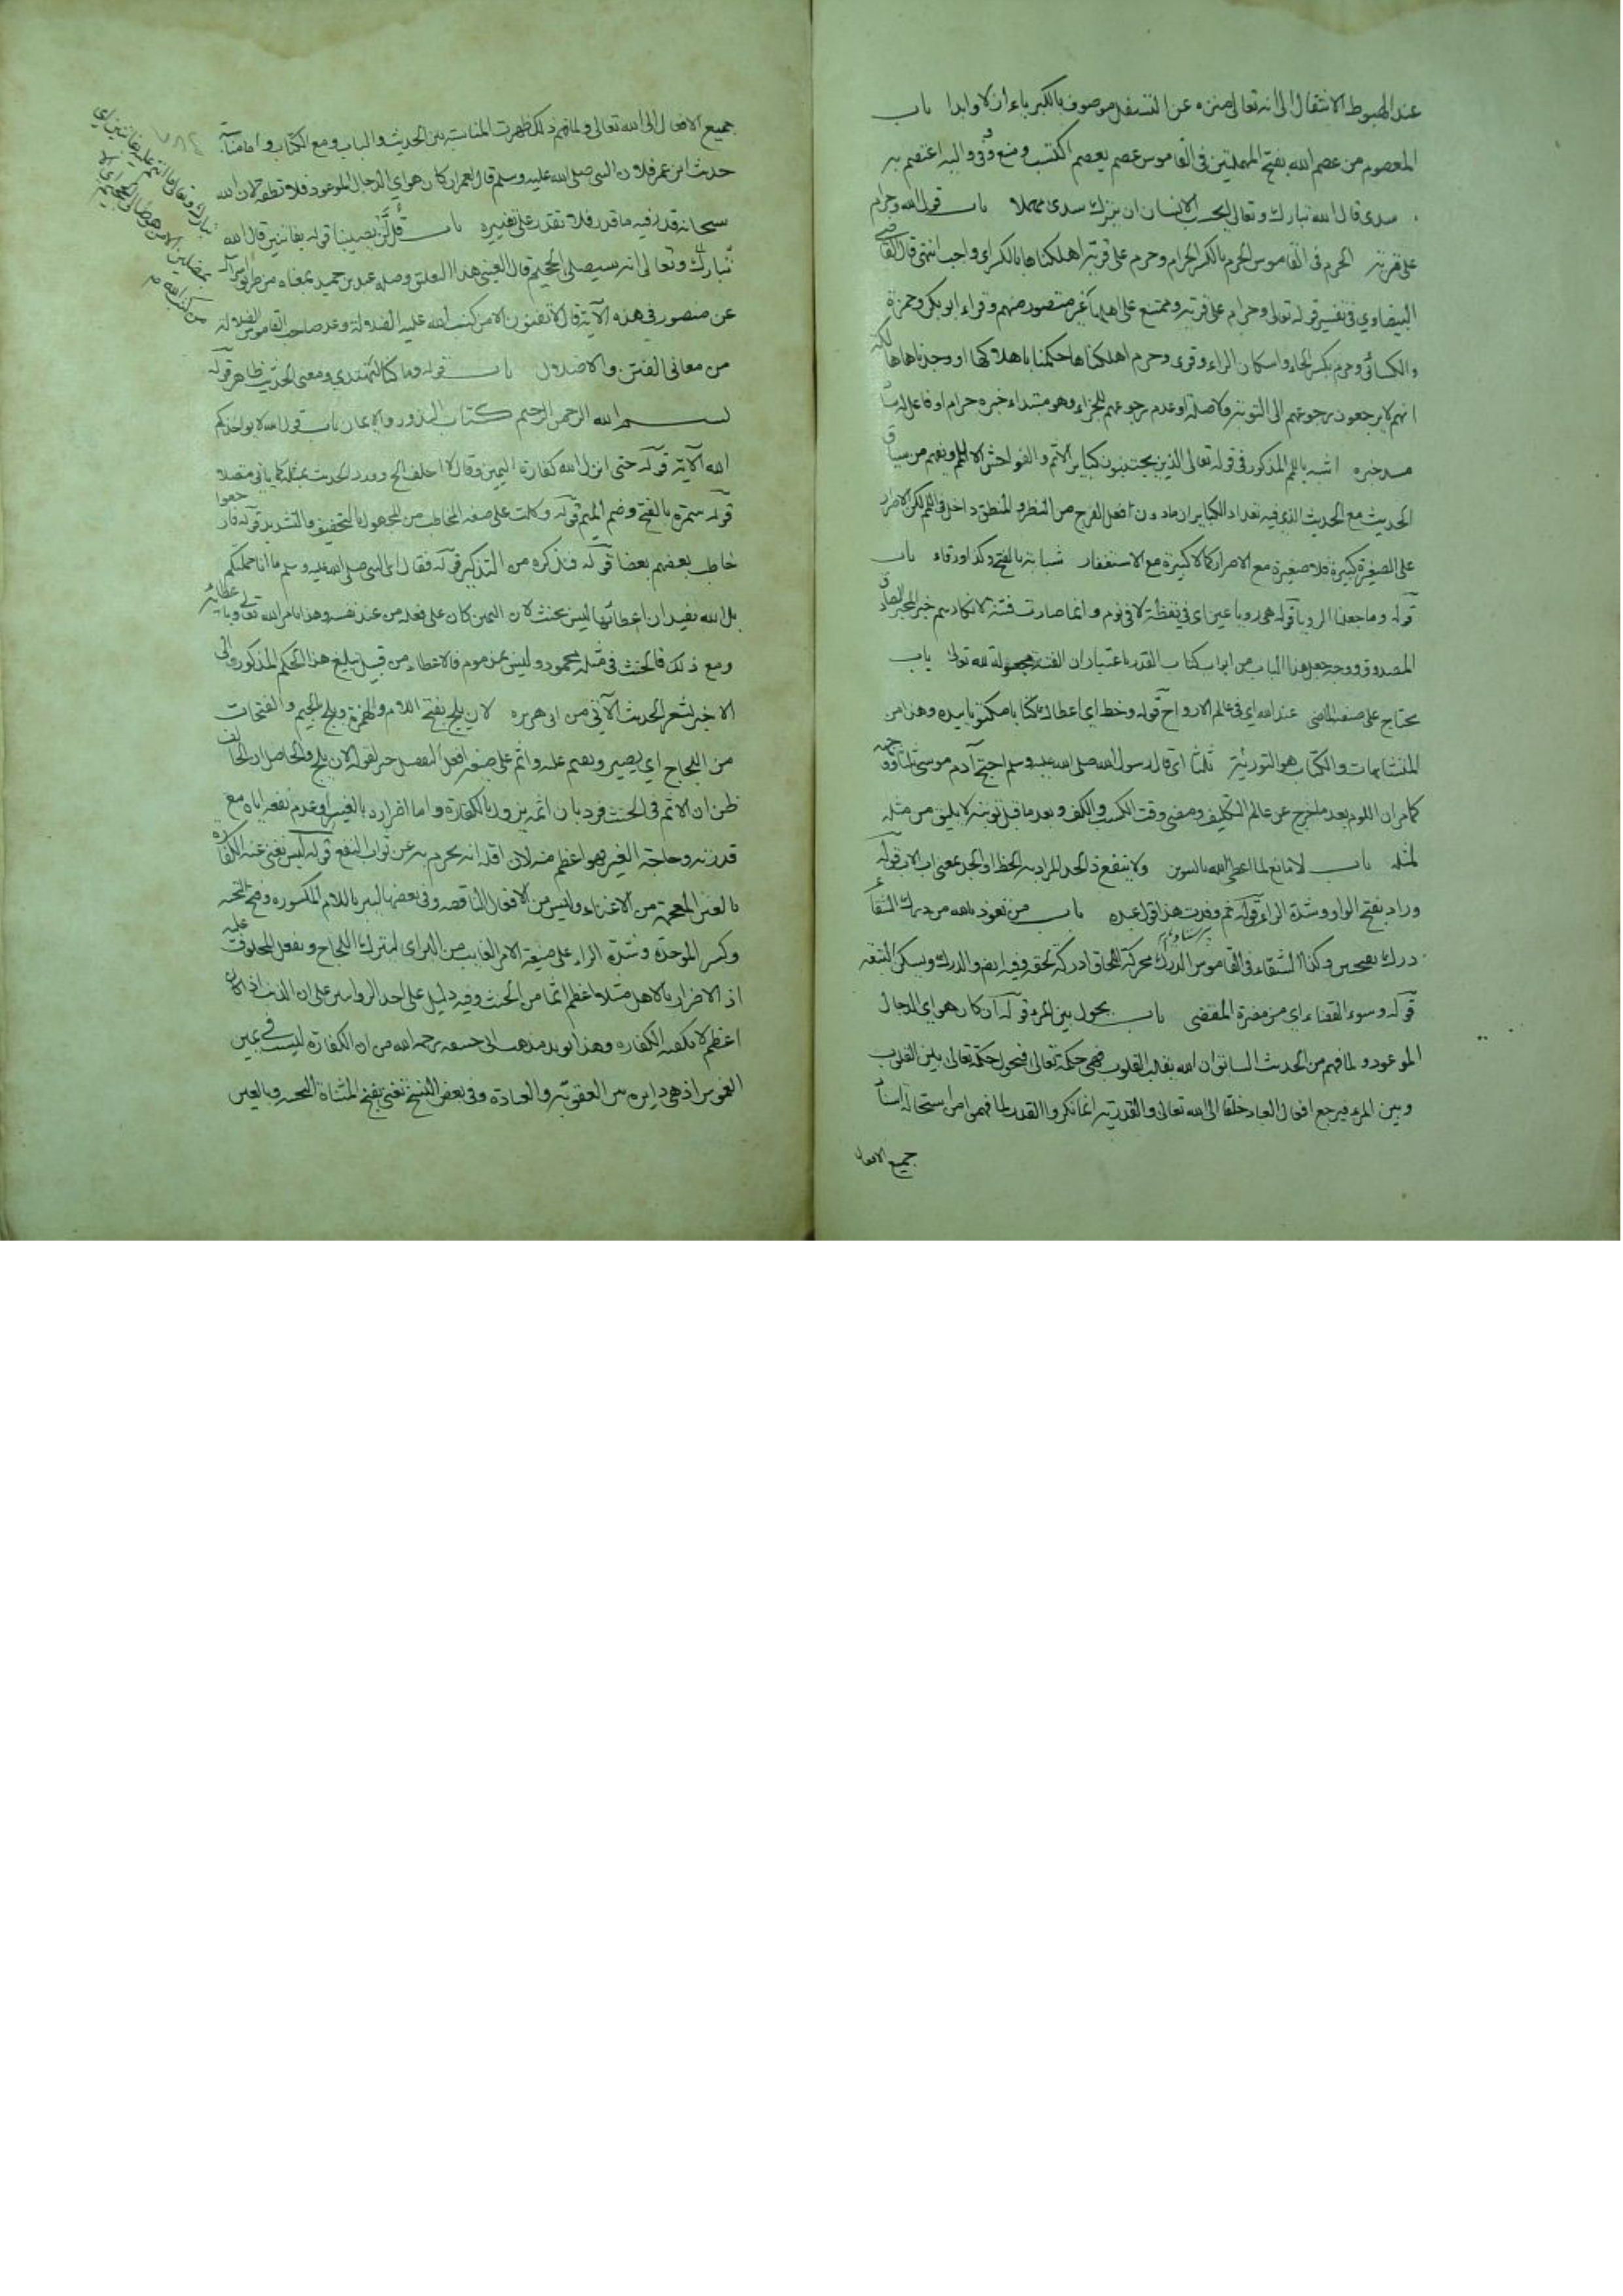 عند الهبوط الانتقال الى انه تعالى منزه عن التسفل موصوف بالكبرياء ازلا وابدا باب
المعصوم من عصم الله بفتح المهملتين فى القاموس عصم يعصم اكتسب ومنع ووقى واليه اعتصم به
سدى قال الله تبارك وتعالى ايحسب الانسان ان يترك سدى مهملا باب قول الله وحرام
على قرية الحرم فى القاموس الحرم بالكسر الحرام وحرم على قرية اهلكناها بالكسر اى واجب انتهى قال القاضى
البيضاوي فى تفسير قوله تعالى وحرام على قرية وممتنع على اهلها غير متصور منهم وقراء ابو بكر وحمزة
والكسائى وحرم بكسر الحاء واسكان الراء وقرى وحرم اهلكناها حكمنا باهلاكها او وجدناها هالكة
انهم لا يرجعون رجوعهم الى التوبة ولا صلة او عدم رجوعهم للجزاء وهو مبتداء خبره حرام او فاعل له ساد
مسد خبره اشبه باللمم المذكور فى قوله تعالى الذين يجتنبون كبائر الاثم والفواحش الا اللمم ويفهم من سياق
الحديث مع الحديث الذى فيه تعداد الكبائر ان ما دون افعل الفرج من النظر والمنطق داخل فى اللمم لكن الاصرار
على الصغيرة كبيرة فلا صغيرة مع الاصرار كما لا كبيرة مع الاستغفار شبابة بالفتح وكذا ورقاء باب
قوله وما جعلنا الرويا قوله هى رويا عين اى فى يقظة لا فى نوم وانما صارت فتنة لانكارهم خبر المخبر الصادق
المصدوق ووجه جعل هذا الباب من ابواب كتاب القدر باعتبار ان الفتنة مجعولة لله تعالى باب
تحاج على صيغة الماضى عند الله اى فى عالم الارواح قوله وخط اى اعطاك كتابا مكتوبا بيده وهذا من
المتشابهات والكتاب هو التورية ثلثا اى قال رسول الله صلى الله عليه وسلم احتج آدم موسى ثلثا ووجهه
كما مر ان اللوم بعد ما خرج عن عالم التكليف ومضى وقت الكسب والكف وبعد ما قبل توبته لا يليق من مثله
لمثله باب لا مانع لما اعطى الله بالتنوين ولا ينفع ذا الجد المراد به الحظ او الجد بمعنى اب الاب قوله
وراد بفتح الواو وشدة الراء قوله ثم وفدت هذا قول عبده باب من تعوذ بالله من درك الشقاء
درك بفتحتين وكذا الشقاء فى القاموس الدرك محركة اللحاق ادركه لحقه وفيه ايضم والدرك ويسكن التبعة
قوله وسوء القضاء اى من مضرة المقضى باب يحول بين المرء قوله ان كان هو اى الدجال
الموعود ولما فهم من الحديث السابق ان الله يقلب القلوب فهى حكمة تعالى فيحول حكمه تعالى بين القلوب
وبين المرء فيرجع افعال العباد خلقا الى الله تعالى والقدرية انما انكروا القدر لما فهموا من استحالة اسناد
جميع الافعال
جميع الافعال الى الله تعالى ولما فهم ذلك ظهرت المناسبة بين الحديث والباب ومع الكتاب واما مناسبة
حديث ابن عمر فلان النبى صلى الله عليه وسلم قال لعمر ان كان هو اى الدجال الموعود فلا تطقه لان الله
سبحانه قدر فيه ما قدر فلا تقدر على تغييره باب قل لن يصيبنا قوله بفاتنين قال الله
تبارك وتعالى انه سيصلى الجحيم قال العينى هذا التعليق وصله عبد بن حميد بمعناه من طريق اسرائيل
عن منصور فى هذه الآية قال لا تفتنون الا من كتب الله عليه الضلالة وعد صاحب القاموس الضلالة
من معانى الفتن والاضلال باب قوله وما كنا لنهتدي ومعنى الحديث ظاهر قوله
بسم الله الرحمن الرحيم كتاب النذور والايمان باب قول الله لا يواخذكم
الله الآية قوله حتى انزل الله كفارة اليمين وقال لا احلف الخ وورد الحديث بمثله كما ياتى متصلا
قوله سمرة بالفتح وضم الميم قوله وكلت على صيغة المخاطب من المجهول بالتخفيف والتشديد قوله قال
خاطب بعضهم بعضا قوله فنذكره من التذكير قوله فقال اى النبى صلى الله عليه وسلم ما انا حملتكم
بل الله يفيد ان اعطائها ليس بحنث لان اليمين كان على فعله من عند نفسه وهذا بامر الله تعالى وباعطائه
ومع ذلك فالحنث فى مثله محمود وليس بمذموم فالاعطاء من قبيل تبليغ هذا الحكم المذكور والى
الاخير يشعر الحديث الآتى من ابى هريره لان يلج بفتح اللام والهمزة ويلج بالجيم والفتحات
من اللجاج اى يصير ويصم عليه واثم على صيغة افعل التفضيل خبر لقوله لان يلج والحاصل ان الحالف
ظن ان الاثم فى الحنث فرد بان اثمه يزول بالكفارة واما اضراره بالغير او عدم نفعه اياه مع
قدرته وحاجة الغير فهو اعظم منه لان اقله انه يحرم به عن ثواب النفع قوله ليس تغنى عنه الكفارة
بالغين المعجمة من الاغناء وليس من الافعال الناقصه وفى بعضها ليبر باللام المكسوره وفتح التحتية
وكسر الموحدة وشدة الراء على صيغة الامر الغايب من البر اى ليترك اللجاج ويفعل المحلوف عليه
اذ الاضرار بالاهل مثلا اعظم اثما من الحنث وفيه دليل على احد الروايتين على ان الذنب اذا كان
اعظم لا يكفيه الكفاره وهذا يويد مذهب ابى حنيفه رحمه الله من ان الكفارة ليست فى يمين
الغموس اذ هى دايره بين العقوبة والعبادة وفى بعض النسخ تغنى بفتح المثناة التحتية وبالعين